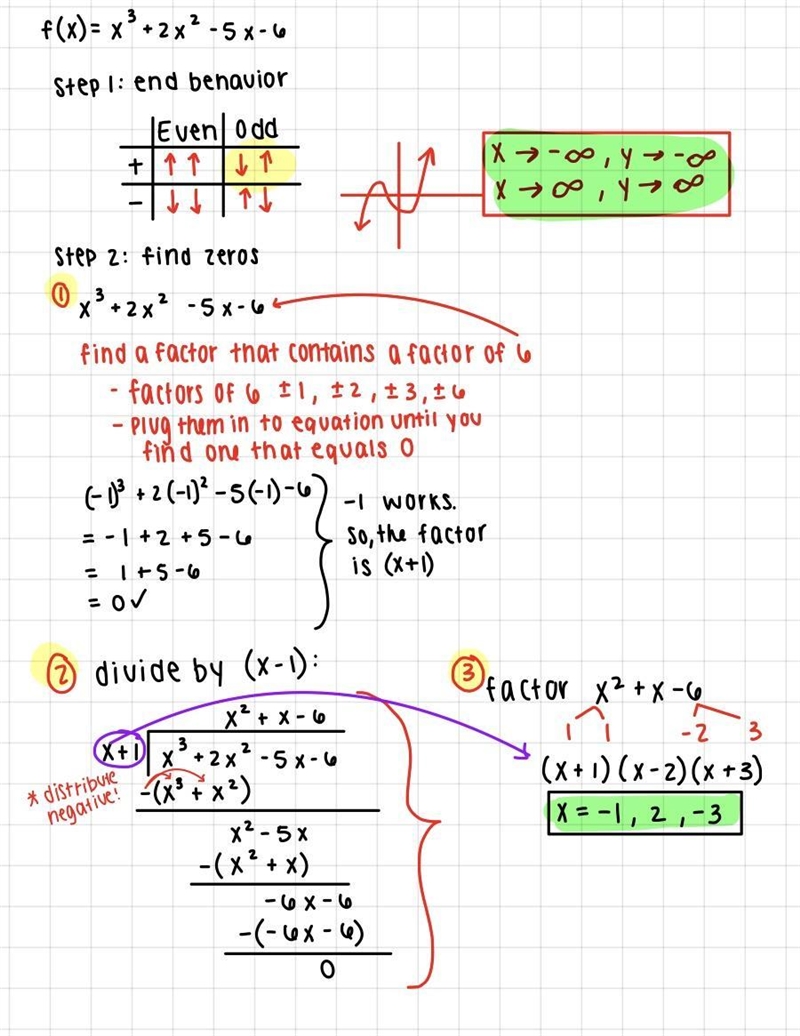 f(x) = x³ + 2x² - 5x - 6
Step 1: end behavior
Even Odd
+ ↑↑ ↓↑
- ↓↓ ↑↓
X → -∞, Y → -∞
X → ∞, Y → ∞
Step 2: find zeros
① x³ + 2x² - 5x - 6
find a factor that contains a factor of 6
- factors of 6 ±1, ±2, ±3, ±6
- Plug them in to equation until you
find one that equals 0
(-1)³ + 2(-1)² - 5(-1) - 6
= -1 + 2 + 5 - 6
= 1 + 5 - 6
= 0 ✓
-1 works.
So, the factor
is (x+1)
② divide by (x-1):
x² + x - 6
x+1 x³ + 2x² - 5x - 6
* distribute
negative!
-(x³ + x²)
x² - 5x
-(x² + x)
-6x - 6
-(-6x - 6)
0
③ factor x² + x - 6
1 1 -2 3
(x+1)(x-2)(x+3)
x = -1, 2, -3